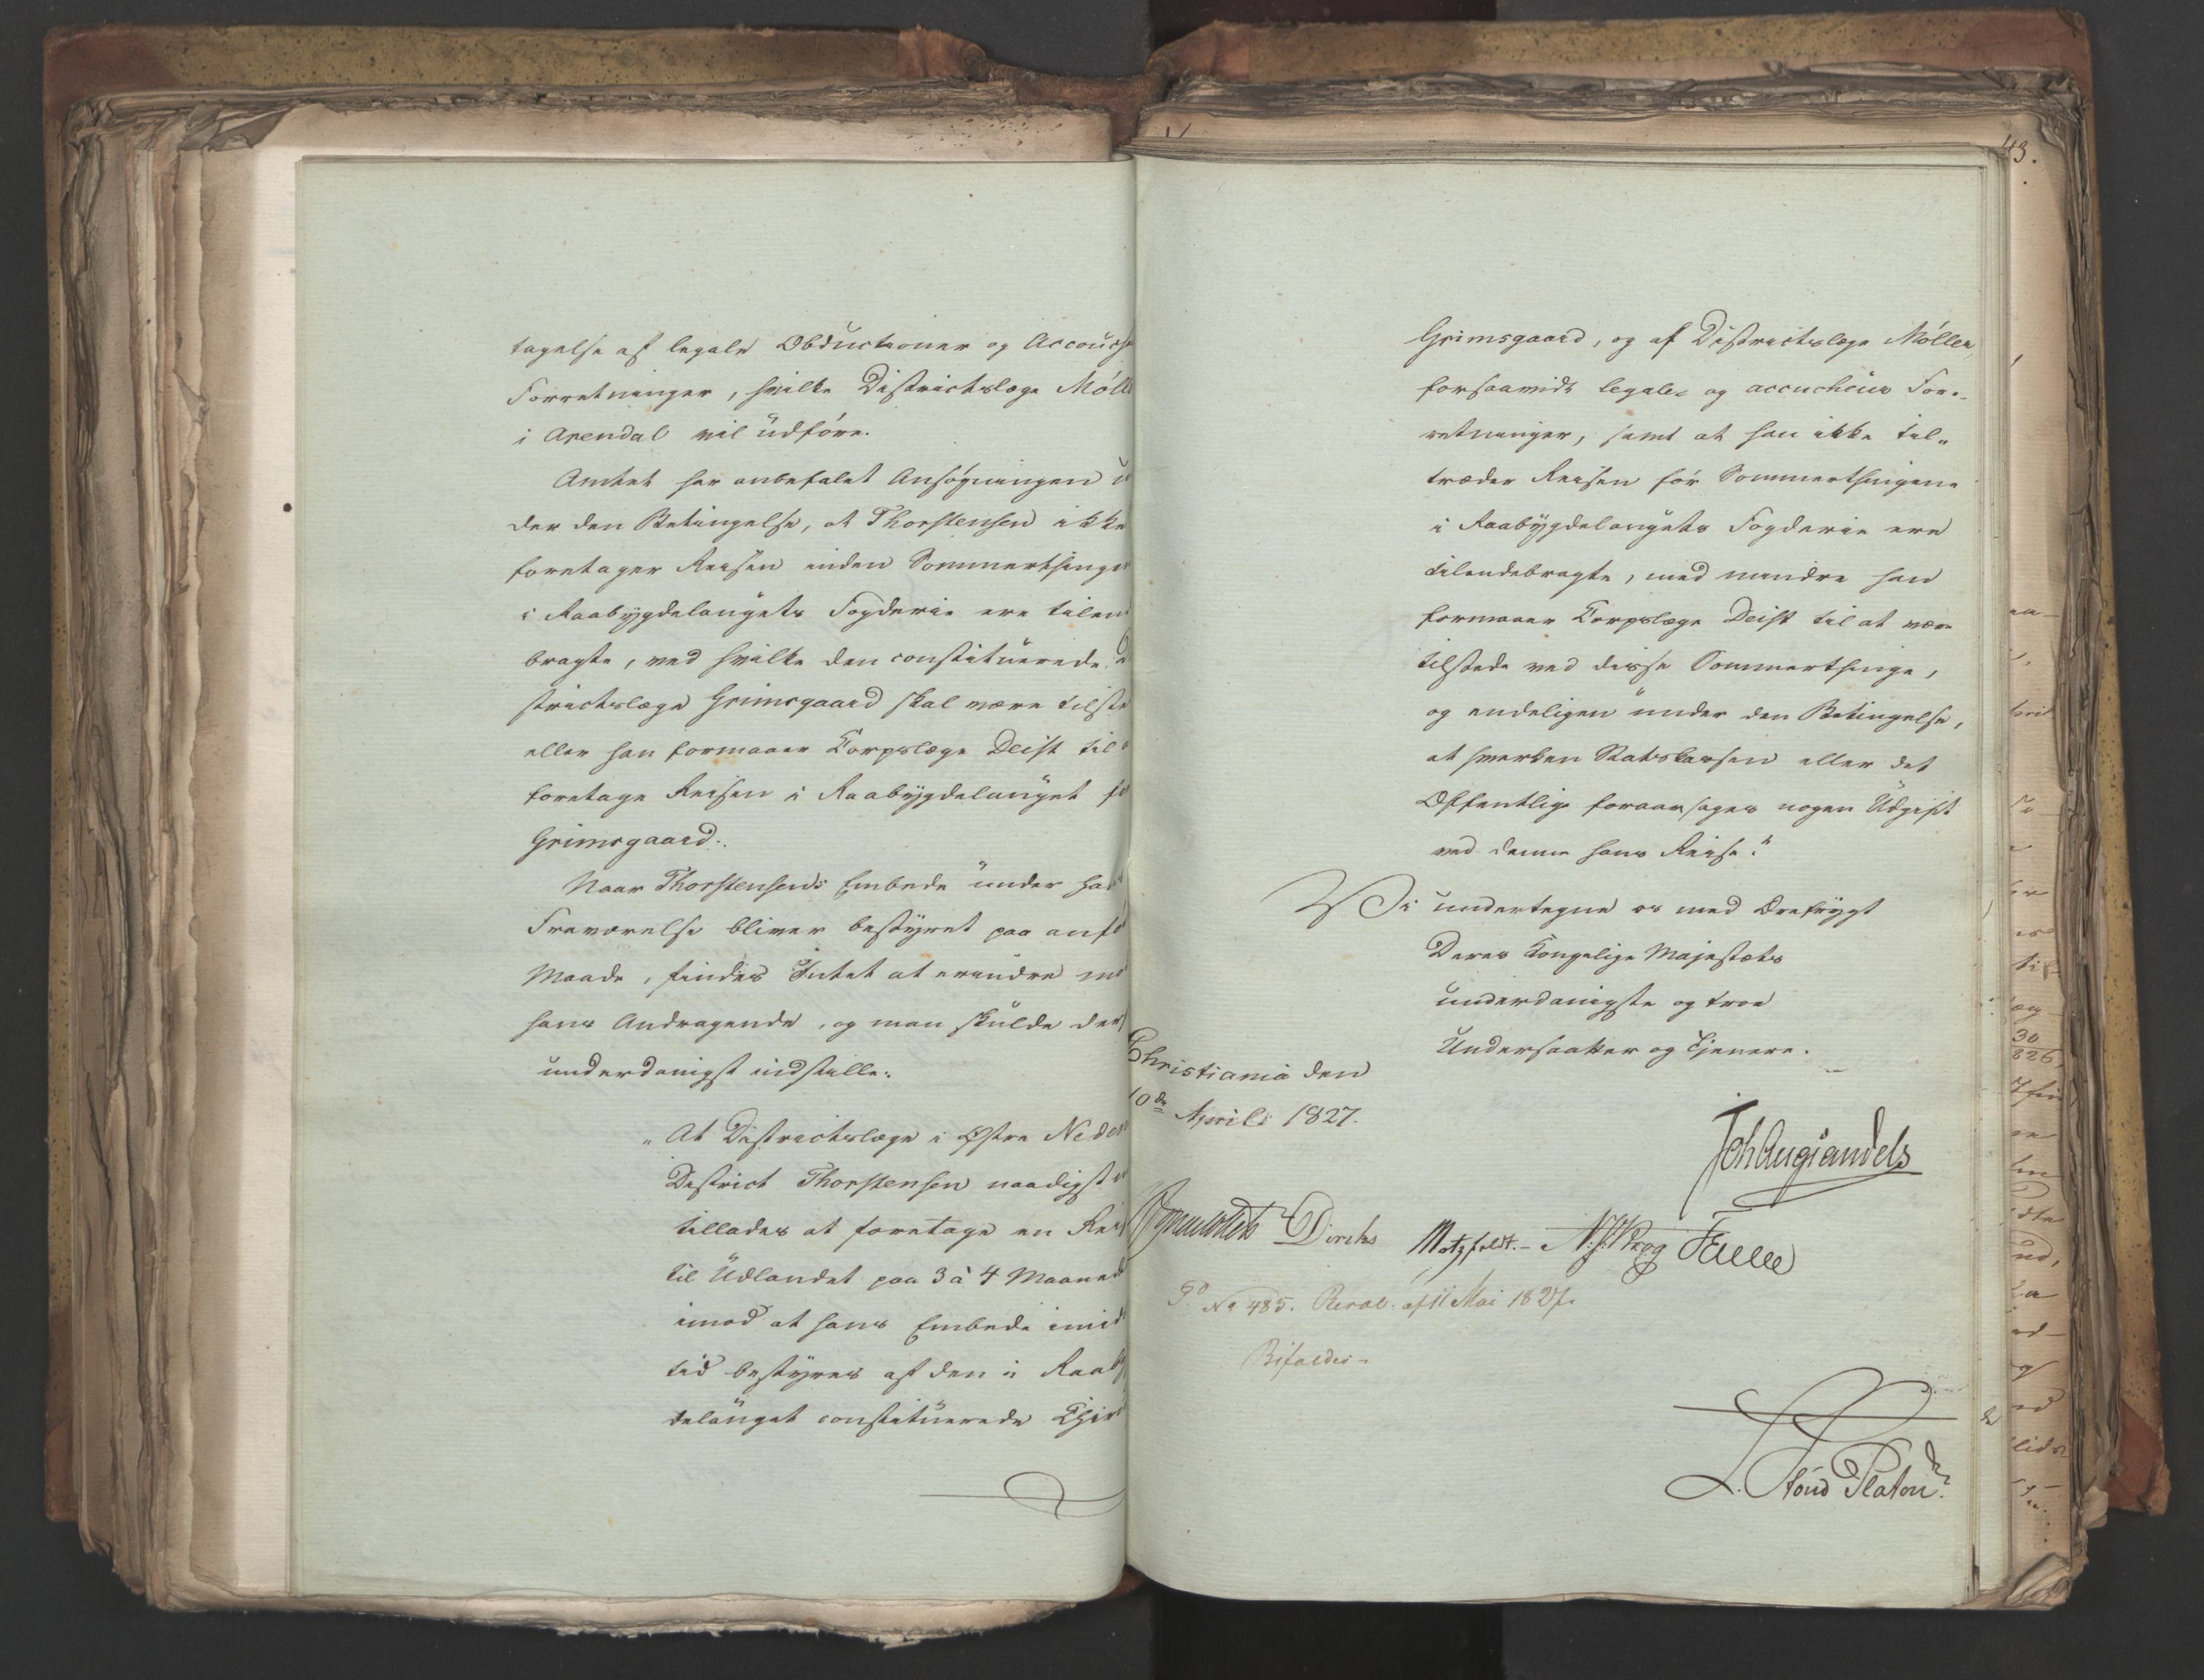 tagelse af legale Obductioner og Accouche
Forretninger, hvilke Districtslæge Mølle
i Arendal vil udføre.
Amtet har anbefalet Ansøgningen u
der den Betingelse, at Thorstensen ikke
foretager Reisen inden Sommerthinge
i Raabygdelaugets Fogderie ere tilen
bragte, ved hvilke den constituerede
strictslæge Grimsgaard skal være tilste
eller han formaaer Corpslæge Deist til
foretage Reisen i Raabygdelauget fo
Grimsgaard.
Naar Thorstensens Embede under ha
Fraværelse bliver bestyret paa anfø
Maade, findes Intet at erindre
hans Andragende, og man skulde der
underdanigst indstille:
„At Districtslæge i Østre Nede
District Thorstensen naadigst
tillades at foretage en Rei
til Udlandet paa 3 à 4 Maaned
imod at hans Embede imid
tid bestyres af den i Raab
delauget constituerede Chir
43.
Grimsgaard, og af Districtslæge Møller,
forsaavidt legale og accucheus For-
retninger, samt at han ikke til-
træder Reisen før Sommerthingene
i Raabygdelaugets Fogderie ere
tilendebragte, med mindre han
formaaer Corpslæge Deist til at være
tilstede ved disse Sommerthinge,
og endeligen under den Betingelse,
at hverken Statskassen eller det
Offentlige foraarsages nogen Udgift
ved denne hans Reise."
Vi undertegne os med Ærefrygt
Deres Kongelige Majestæts
underdanigste og troe
Undersaatter og Tjenere.
Christiania den
10de April 1827.
Joh Aug Sandels
Diriks Motzfeldt. Krog Fasting
No 485. Resol. af 11 Mai 1827.
Bifaldes.